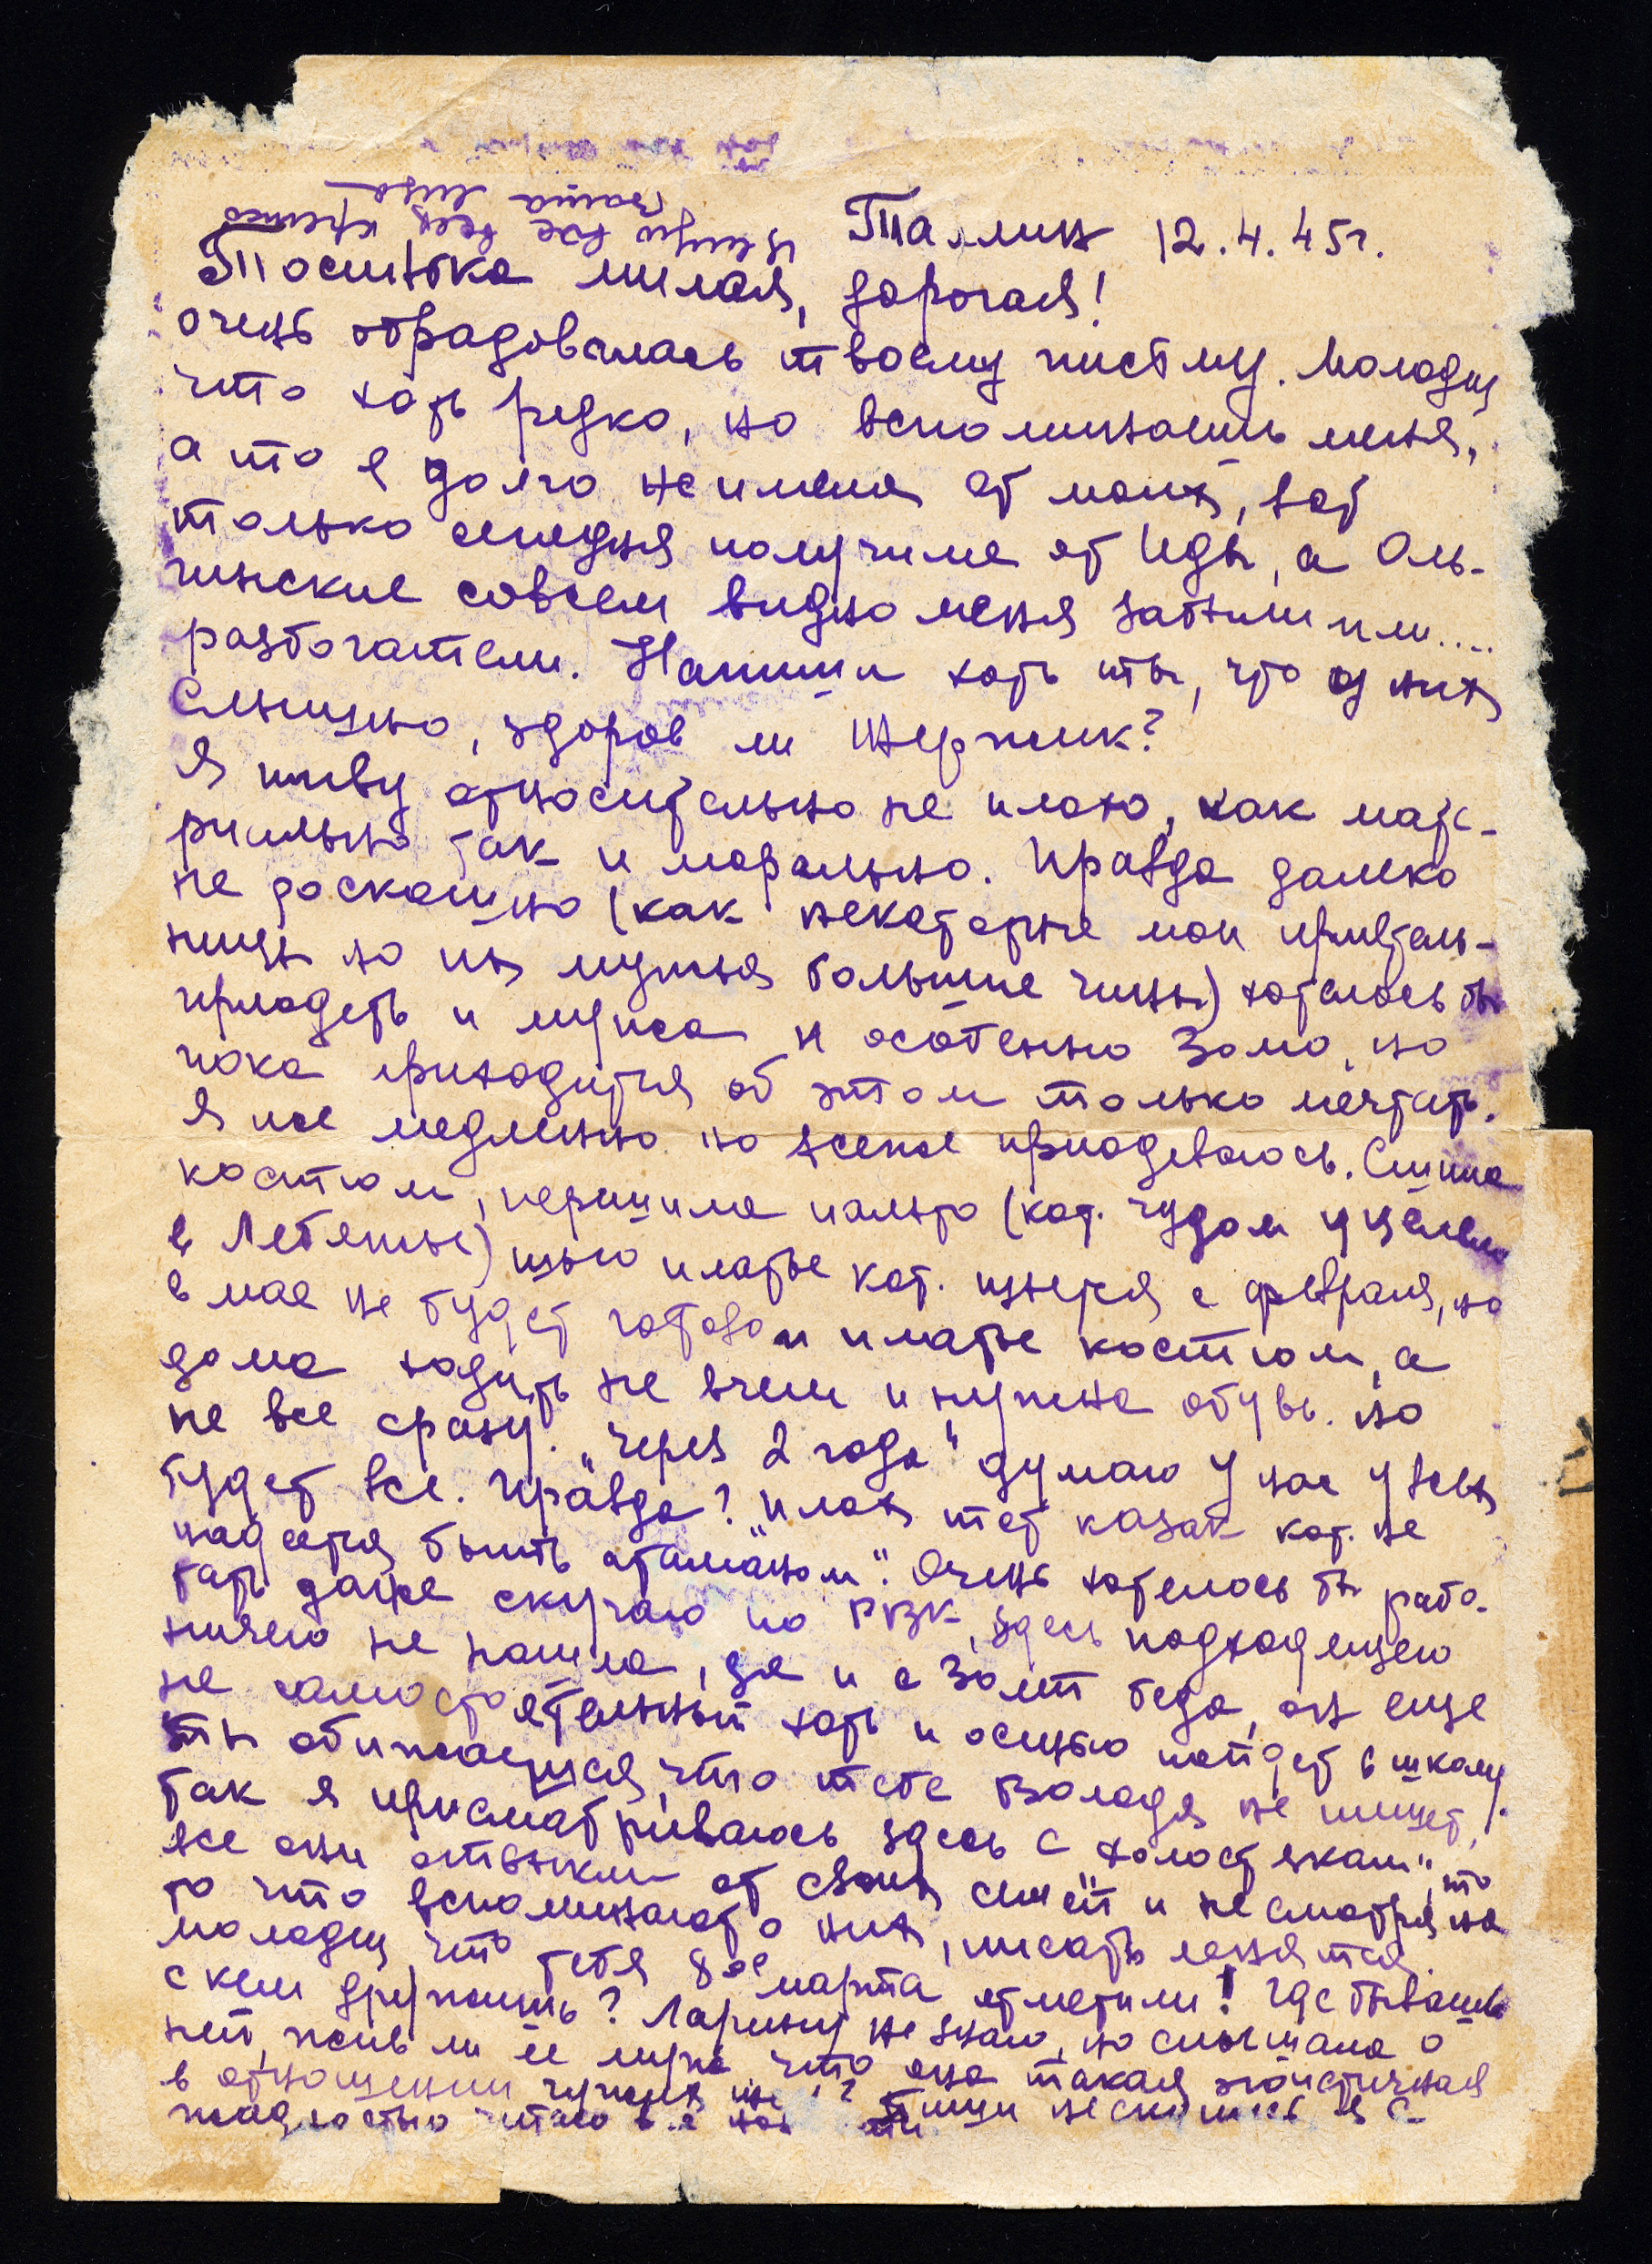 Таллин 12.4.45г.
Тосинька милая, дорогая!
очень обрадовалась твоему письму. Молодец
что хоть редко, но вспоминаешь меня,
а то я долго не имела от моих, вот
только сегодня получила от Иды, а Оль-
гинские совсем видно меня забыли или....
разбогатели. Напиши хоть ты, что у них
слышно, здоров ли
Я живу относительно не плохо, как мате-
риально так и морально. Правда далеко
не роскошно (как некоторые мои приятель-
ницы но их мужья большие чины) хотелось бы
приодеть и мужа и особенно Зомо, но
пока приходится об этом только мечтать.
Я же медленно но все же приодеваюсь. Сшила
костюм, перешила пальто (кот. чудом уцелело
в Лебяжье) шью платье кот. шьется с февраля, но
в мае не будет готово и платье костюм, а
дома ходить не в чем и нужна обувь. но
не все сразу. „Через 2 года" думаю у нас у всех
будет все. Правда? „Плох тот казак кот. не
надеется быть атаманом". Очень хотелось бы рабо-
тать даже скучаю по РВК, здесь подходящего
ничего не нашла, да и с беда, он еще
не самостоятельный хоть и осенью пойдет в школу.
Ты обижаешься, что тебе Володя не пишет,
так я присматриваюсь здесь с „холостяками", что
все они отвыкли от своих семей и не смотря на
то что вспоминают о них, писать ленятся.
молодцы, что тебя 8ое марта отметили! Где бываешь
с кем дружишь? Ларину не знаю, но слышала о
ней, жив ли ее муж? что она такая эгоистичная
в отношении чужих
жадностью читаю все Пиши не скупись я с
Целую вас всех крепко
Ваша Лиза